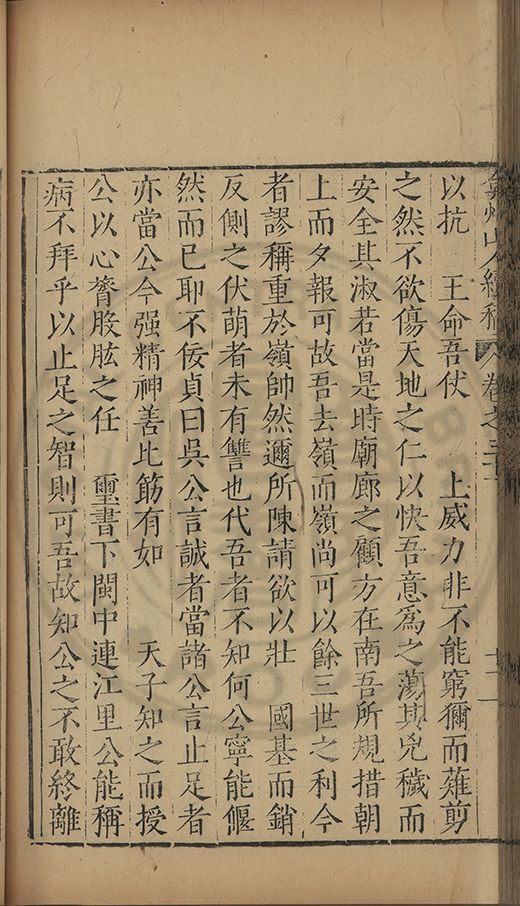 弇州山人續稿 卷之三十
以抗　王命吾仗　　上威力非不能窮獮而薙剪
之然不欲傷天地之仁以快吾意爲之蕩其兇穢而
安全其淑若當是時廟廊之顧方在南吾所規措朝
上而夕報可故吾去嶺而嶺尚可以餘三世之利今
者謬稱重於嶺帥然邇所陳請欲以壯　國基而銷
反側之伏萌者未有讐也代吾者不知何公寧能偃
然而已耶不佞貞曰吳公言誠者當諸公言止足者
亦當公今强精神善比筯有如　　天子知之而授
公以心膂股肱之任　璽書下閩中連江里公能稱
病不拜乎以止足之智則可吾故知公之不敢終離